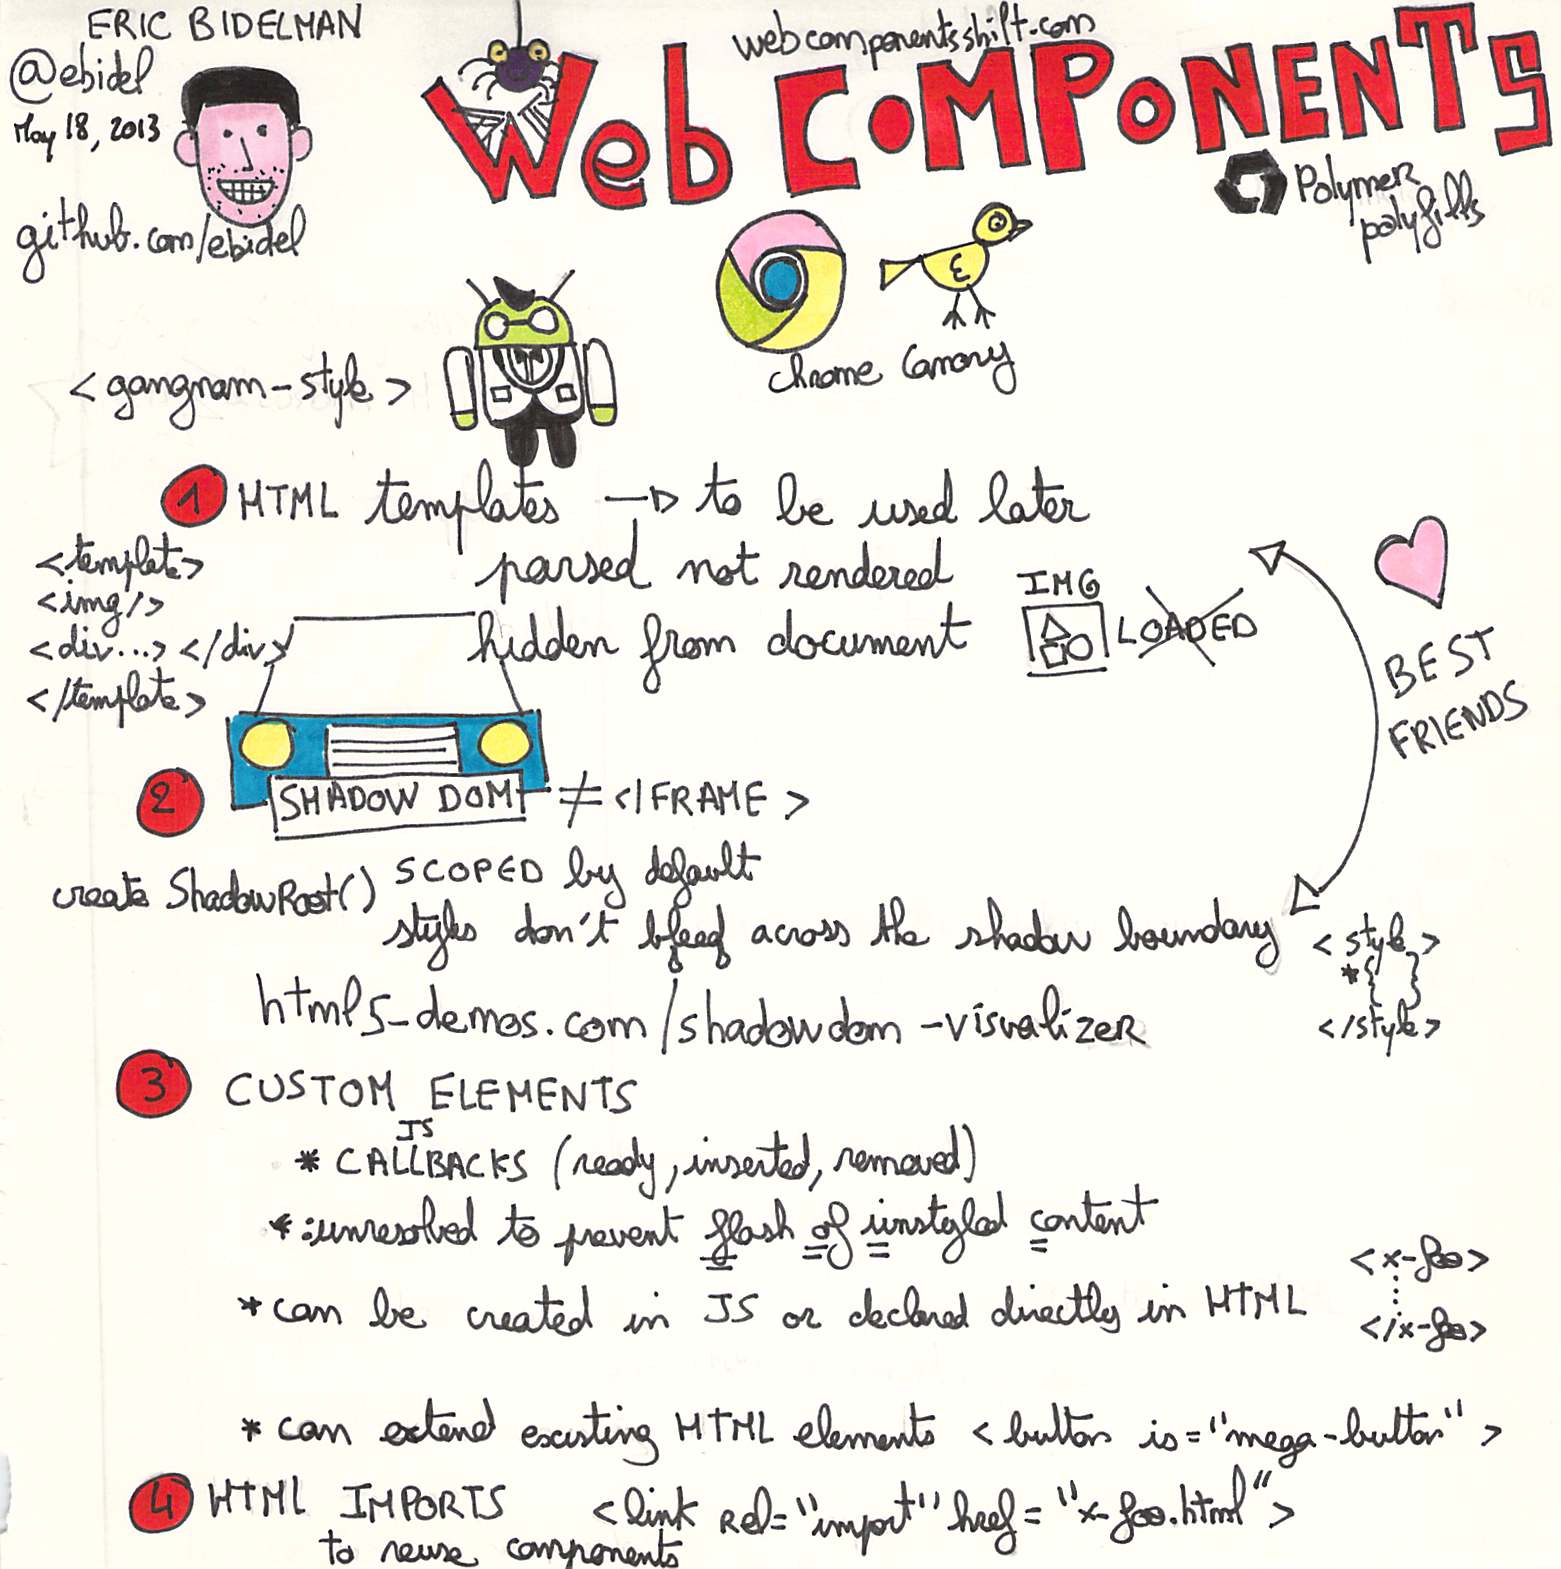 ERIC BIDELMAN
@ebidel
May 18, 2013
github.com/ebidel
webcomponentsshift.com
Web COMPONENTS
Polymer
polyfills
chrome Canary
<gangnam-style>
1 HTML templates → to be used later
parsed not rendered
hidden from document
<template>
<img/>
<div...> </div>
</template>
IMG
LOADED
BEST
FRIENDS
2 SHADOW DOM ≠ </IFRAME>
create ShadowRoot() SCOPED by default
styles don't bleed across the shadow boundary
<style>
*{ }
</style>
html5-demos.com/shadowdom-visualizer
3 CUSTOM ELEMENTS
JS
* CALLBACKS (ready, inserted, removed)
* :unresolved to prevent flash of unstyled content
* can be created in JS or declared directly in HTML
<x-foo>
⋮
</x-foo>
* can extend existing HTML elements <button is="mega-button">
4 HTML IMPORTS <link rel="import" href="x-foo.html">
to reuse components